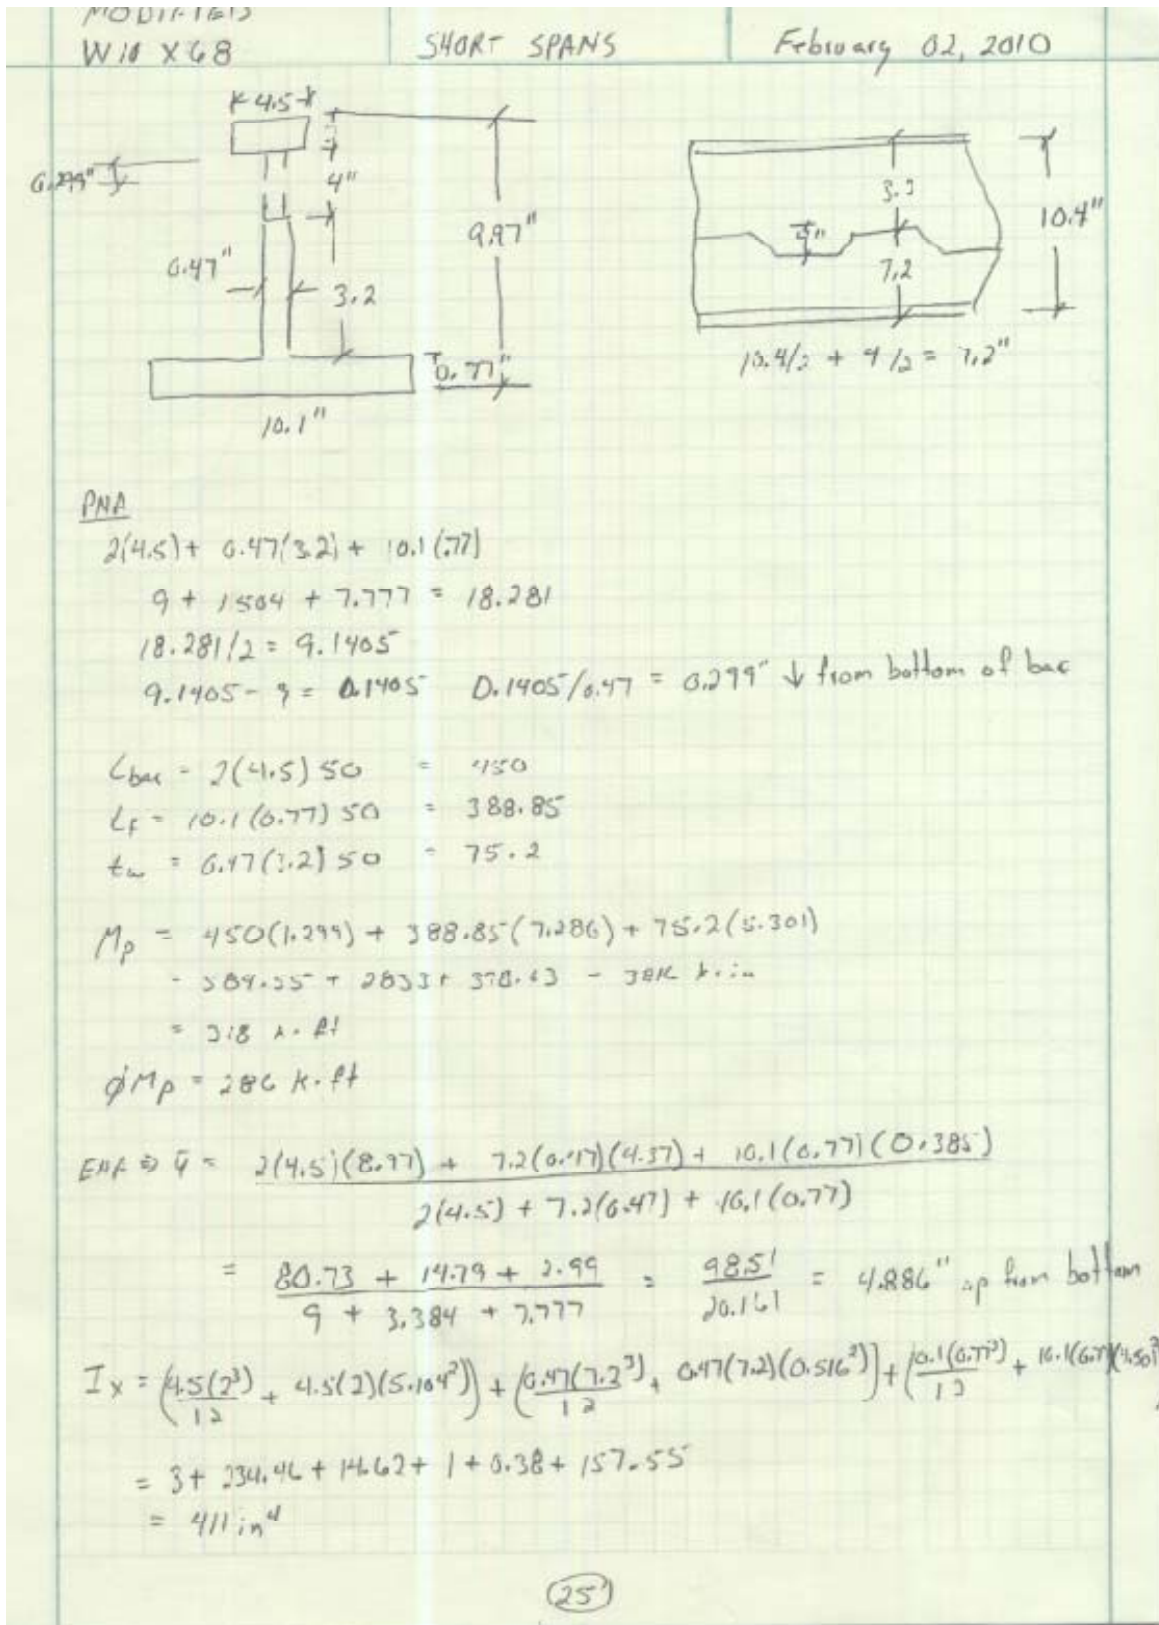 MODIFIED
W10 X68
SHORT SPANS
February 02, 2010
4.5
0.299"
4"
9.97"
0.47"
3.2
0.77"
10.1"
3.2
4"
10.4"
7.2
10.4/2 + 4/2 = 7.2"
PNA
2(4.5) + 0.47(3.2) + 10.1(.77)
9 + 1504 + 7.777 = 18.281
18.281/2 = 9.1405
9.1405 - 9 = 0.1405 0.1405/0.47 = 0.299" ↓ from bottom of bar
Cbar = 2(4.5) 50 = 450
Lf = 10.1(0.77) 50 = 388.85
tw = 0.47(3.2) 50 = 75.2
Mp = 450(1.299) + 388.85(7.286) + 75.2(5.301)
= 584.55 + 2833 + 398.63 = k.in
= 318 k.ft
ØMp = 286 k.ft
ENA ⇒ ȳ = 2(4.5)(8.97) + 7.2(0.47)(4.37) + 10.1(0.77)(0.385)
2(4.5) + 7.2(0.47) + 10.1(0.77)
= 80.73 + 14.79 + 2.99 = 98.51 = 4.886" up from bottom
9 + 3.384 + 7.777 20.161
Ix = (4.5(2³) + 4.5(2)(5.104²)) + (0.47(7.2³) + 0.47(7.2)(0.516²)) + (10.1(0.77³) + 10.1(0.77)(4.50²)
12 12 12
= 3 + 234.46 + 14.62 + 1 + 0.38 + 157.55
= 411 in⁴
25'